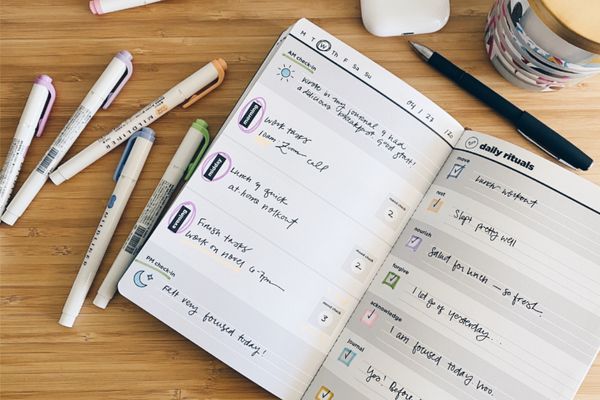 M T W Th F Sa Su
AM check-in
04 / 23
Wrote in my journal & had
a delicious breakfast. Good start!
morning
Work tasks
10am Zoom call
mood check
2
midday
Lunch & quick
at home workout
mood check
2
evening
Finish tasks
Work on novel 6-7pm
mood check
3
PM check-in
Felt very focused today!
daily rituals
move
Lunch workout
rest
Slept pretty well
nourish
Salad for lunch – so fresh
forgive
I let go of yesterday...
acknowledge
I am focused today
journal
Yes! Before
MILDLINER